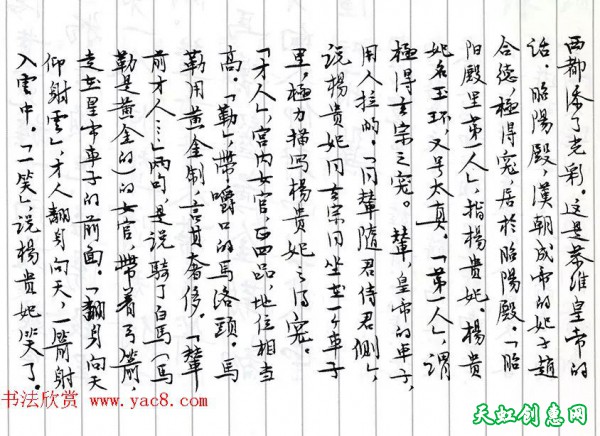 西都添了光彩。这是恭维皇帝的
话。昭陽殿，漢朝成帝的妃子趙
合德，極得寵，居於昭陽殿。「昭
阳殿里第一人」，指楊贵妃。楊贵
妃名玉环，又号太真。「第一人」，谓
極得玄宗之宠。輦，皇帝的车子，
用人拉的。「同輦隨君侍君側」，
说楊贵妃同玄宗同坐在一个车子
里，極力描写楊贵妃之得宠。
「才人」，宫内女官，正四品，地位相当
高。「勒」，带嚼口的马洛頭。马
勒用黄金制，言其奢侈。「輦
前才人…」两句，是说骑了白马（马
勒是黄金的）的女官，带着弓箭，
走在皇帝车子的前面。「翻身向天
仰射雲」，才人翻身向天，一箭射
入雲中。「一笑」，说楊贵妃笑了。
书法欣赏 www.yac8.com
天虹创意网